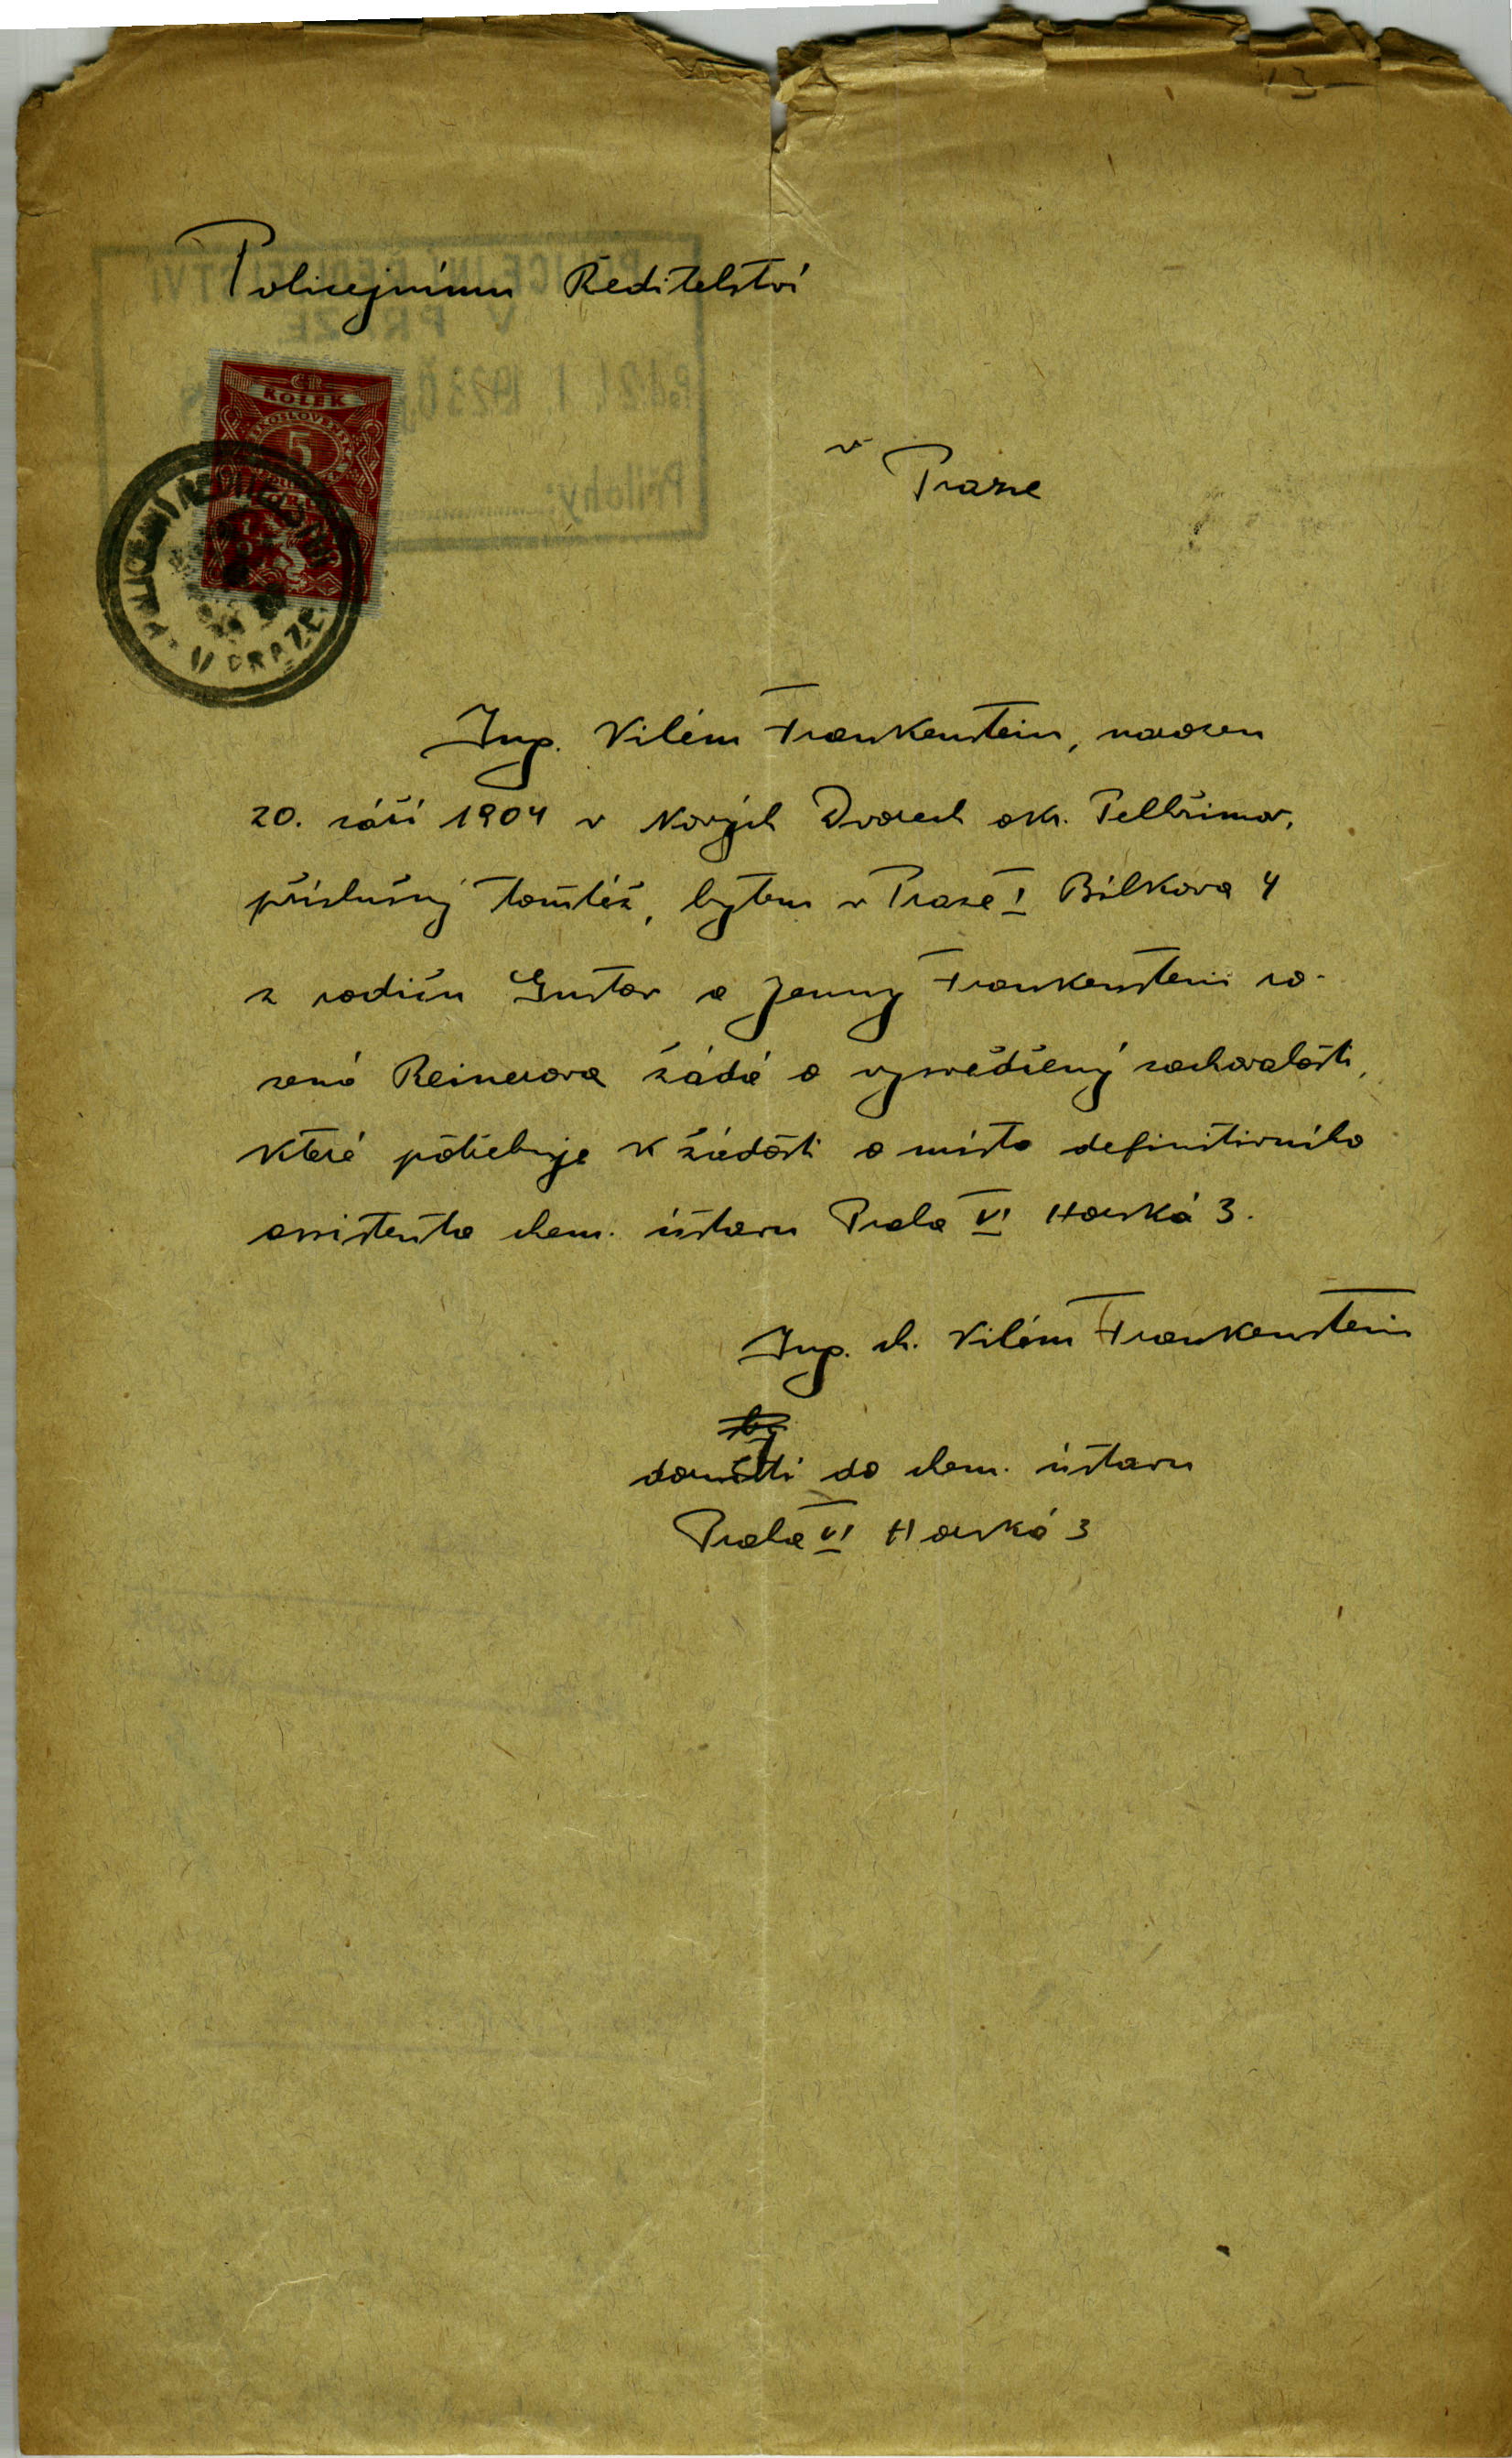 13
Policejnímu Ředitelství
v Praze
ČR
KOLEK
5
V PRAZE
Přílohy:
Ing. Vilém Frankenstein, narozen
20. září 1904 v Nových Dvorech okr. Pelhřimov,
příslušný tamtéž, bytem v Praze I Bílkova 4
z rodičů Gustav a Jenny Frankenstein ro-
zená Reinerova žádá o vysvědčený zachovalosti,
které potřebuje k žádosti o místo definitivního
assistenta chem. ústavu Praha VI Horská 3.
Ing. ch. Vilém Frankenstein
doručiti do chem. ústavu
Praha VI Horská 3